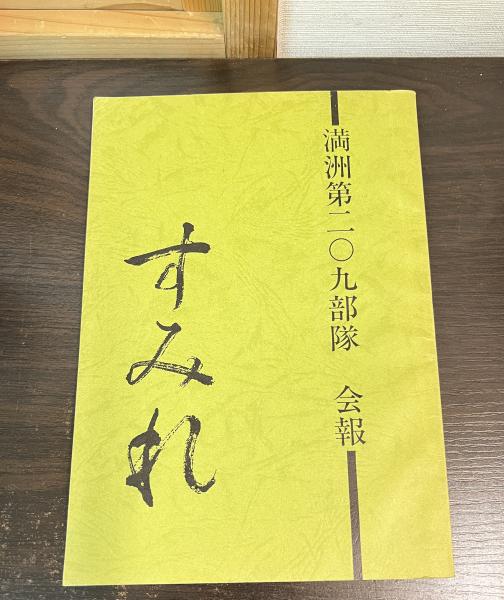 満洲第二〇九部隊 会報
すみれ